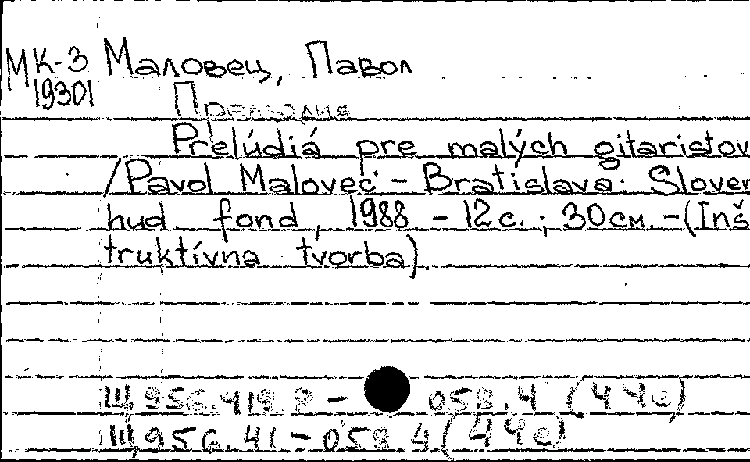 МК-3 Маловец, Павол
19301
Прелюдия
Prelúdiá pre malých gitaristov
/Pavol Malovec - Bratislava: Sloven
hud fond, 1988 - 12 с. ; 30 см. - (Inš
truktívna tvorba).
Щ,956.419.8 - 058.4 (4 Че)
Щ,956.41 - 058.4 (4 Че)